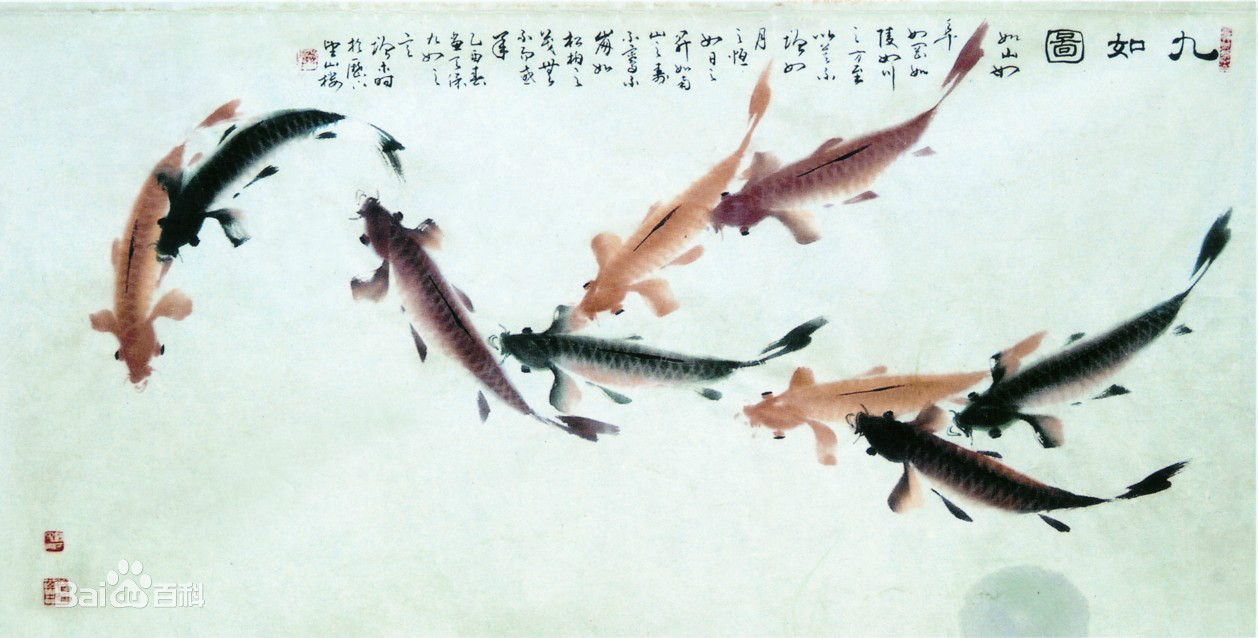 九如圖
如山如
阜
如岡如
陵如川
之方至
以莫不
增如
月
之恒
如日之
昇如南
山之壽
不騫不
崩如
松柏之
茂無
不爾或
承
乙酉春
天保
九如之
意
於歷下
望山樓
Baidu百科